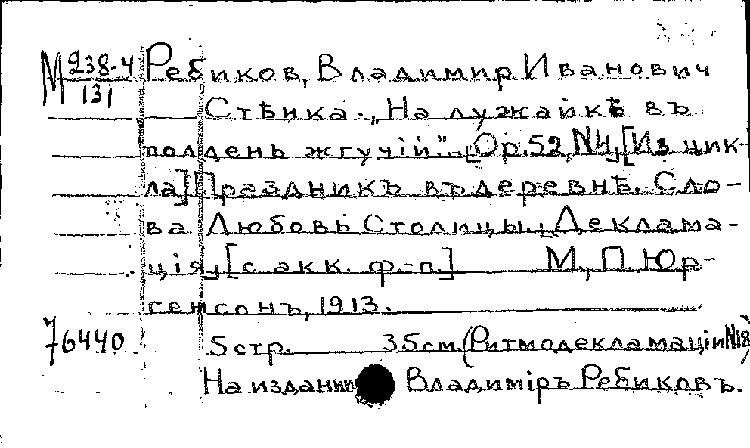 М 238-4 Ребиков, Владимир Иванович
131
Стѣнка. „На лужайкѣ въ
полдень жгучій". Op.52, №4, [Из цик-
ла] Праздникъ въ деревнѣ. Сло-
ва Любовь Столицы. Деклама-
ція, [с акк. ф.-п.] М., П. Юр-
генсонъ, 1913.
76440. 5 стр. 35см. (Ритмодекламаціи №18)
На издании Владиміръ Ребиковъ.